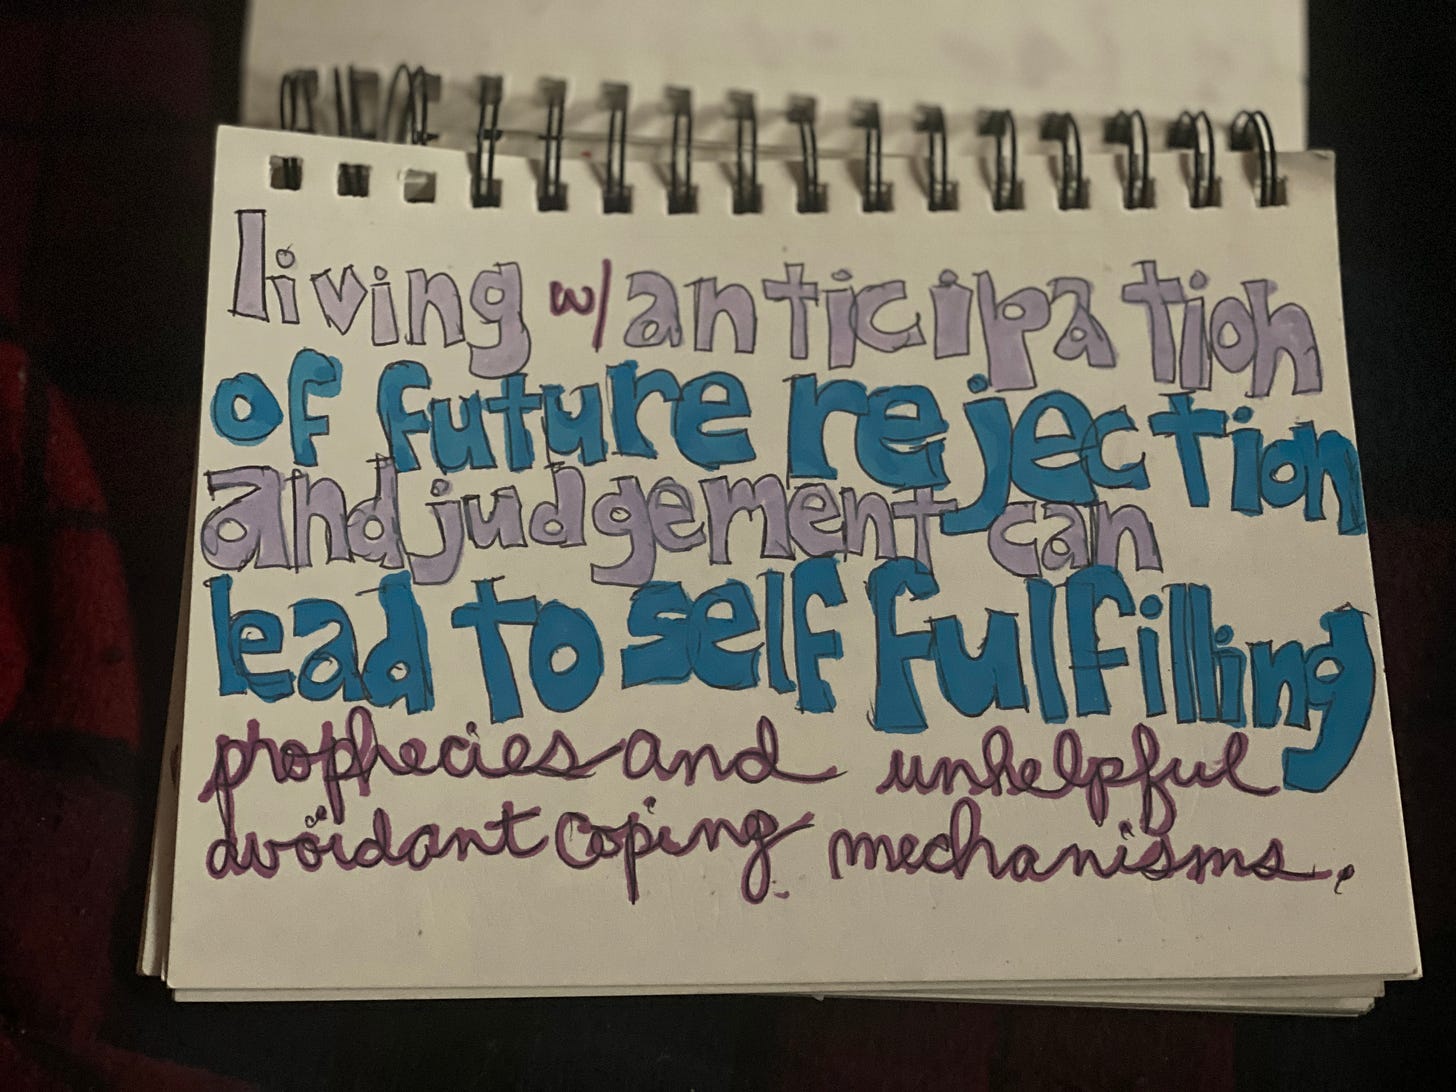 living w/ anticipation
of future rejection
and judgement can
lead to self fulfilling
prophecies and unhelpful
avoidant coping mechanisms.